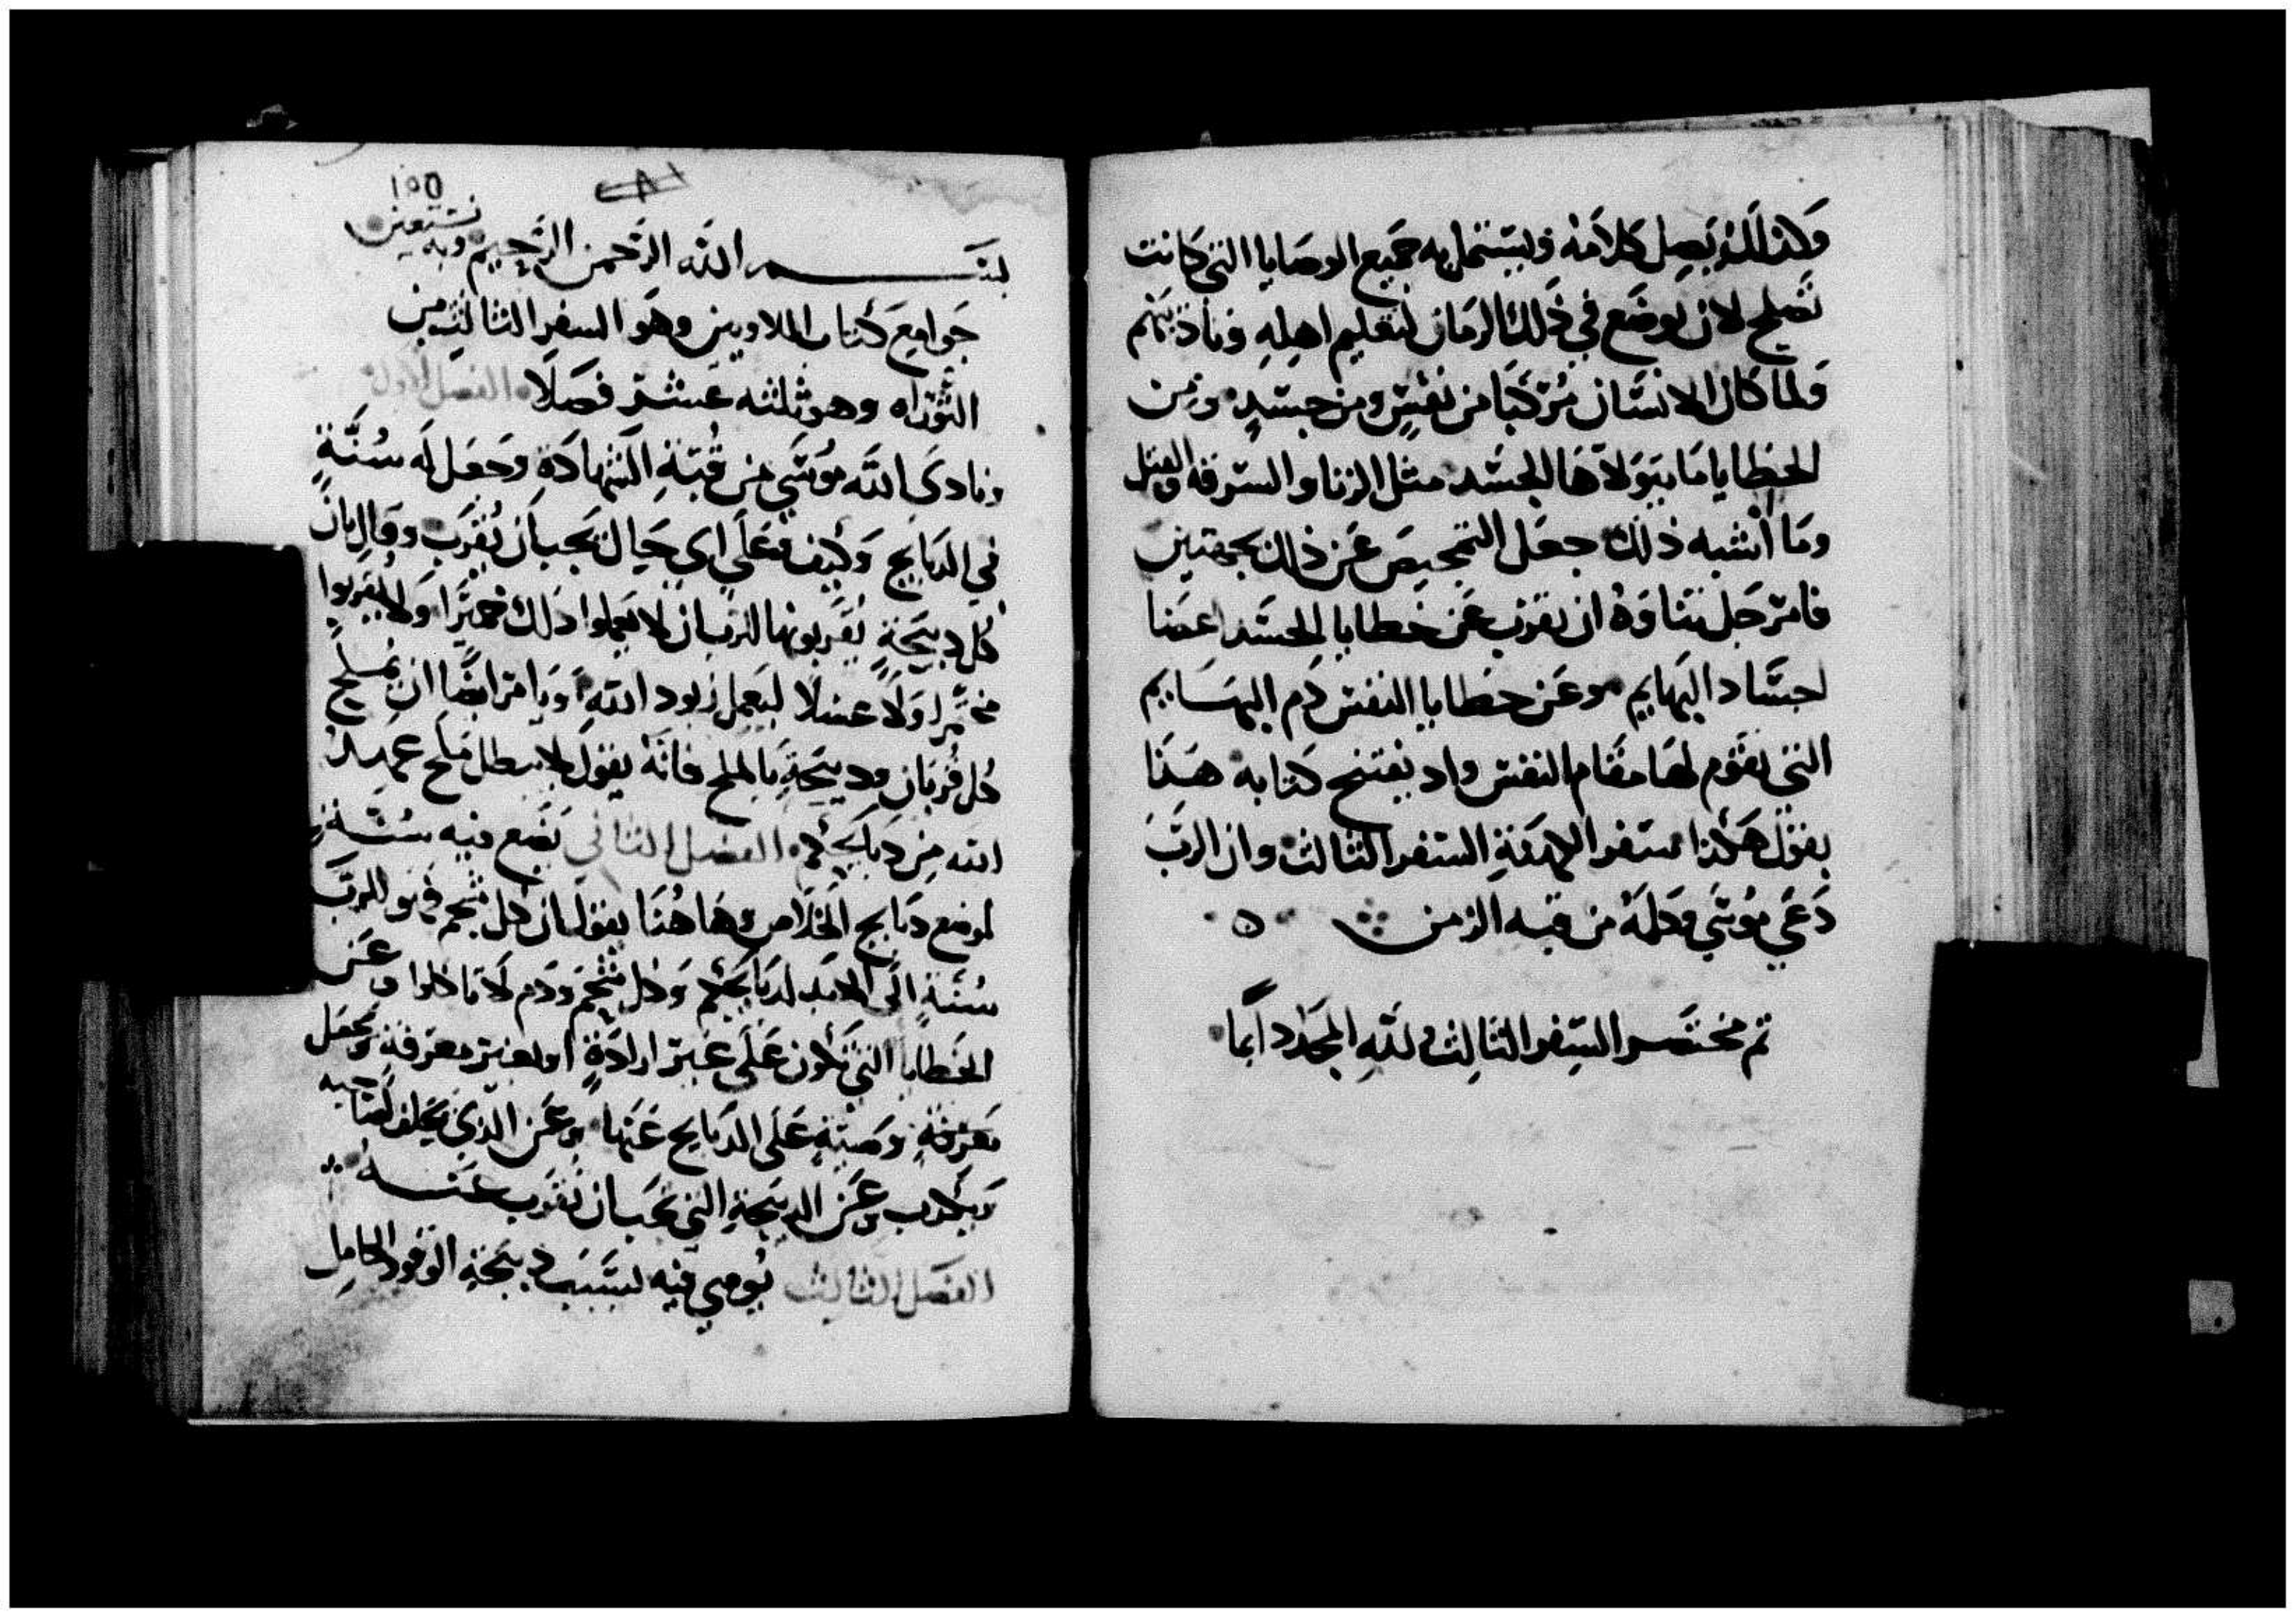 وكذلك يصل كلامه ويستتم له به جميع الوصايا التي كانت
تصلح لان توضع في ذلك الزمان لتعليم اهله وتاديبهم
ولما كان الانسان مركبا من نفس ومن جسد ومن
الخطايا ما يتولاها الجسد مثل الزنا والسرقه والقتل
وما اشبه ذلك جعل التمحيص عن ذلك بجهتين
فامر جل ثناوه ان يقرب عن خطايا الجسد اعضا
اجساد البهايم وعن خطايا النفس دم البهايم
التي يقوم لها مقام النفس واد يفتتح كتابه هذا
يقول هكذا سفر الكهنة السفر الثالث وان الرب
دعي موسي وكلمه من قبه الزمن
تم مختصر السفر الثالث ولله المجد دايما
١٥٥
بسم الله الرحمن الرحيم وبه نستعين
جوامع كتاب اللاويين وهو السفر الثالث من
التوراه وهو ثلثه عشر فصلا الفصل الاول
ونادى الله موسي من قبة الشهادة وجعل له سنة
في الدبايح وكيف وعلي اي حيال يجب ان تقرب وقال بان
كل دبيحة يقربونها للرب ان لا يعملوا ذلك خميرا ولا يقربوا
مخمرا ولا عسلا ليعمل زبود الله ويامر ايضا ان يملح
كل قربان ودبيحة بالملح فانه يقول لا يبطل ملح عهد
الله من دبايحكم الفصل الثاني يضع فيه سنة
لموضع دبايح الخلاص وهاهنا يقول ان كل شحم فهو للرب
سنة الى الابد لدبايحكم وكل شحم ودم لا تاكلوا وعن
الخطايا التي تكون على غير ارادة او بغير معرفة ويجعل
معرفة وصية على الدبايح عنها وعن الذي يحلف لصاحبه
ويكدب وعن الدبيحة التي يجب ان تقرب عنه
الفصل الثالث يوصي فيه بسبب دبيحة الوقود الكامل